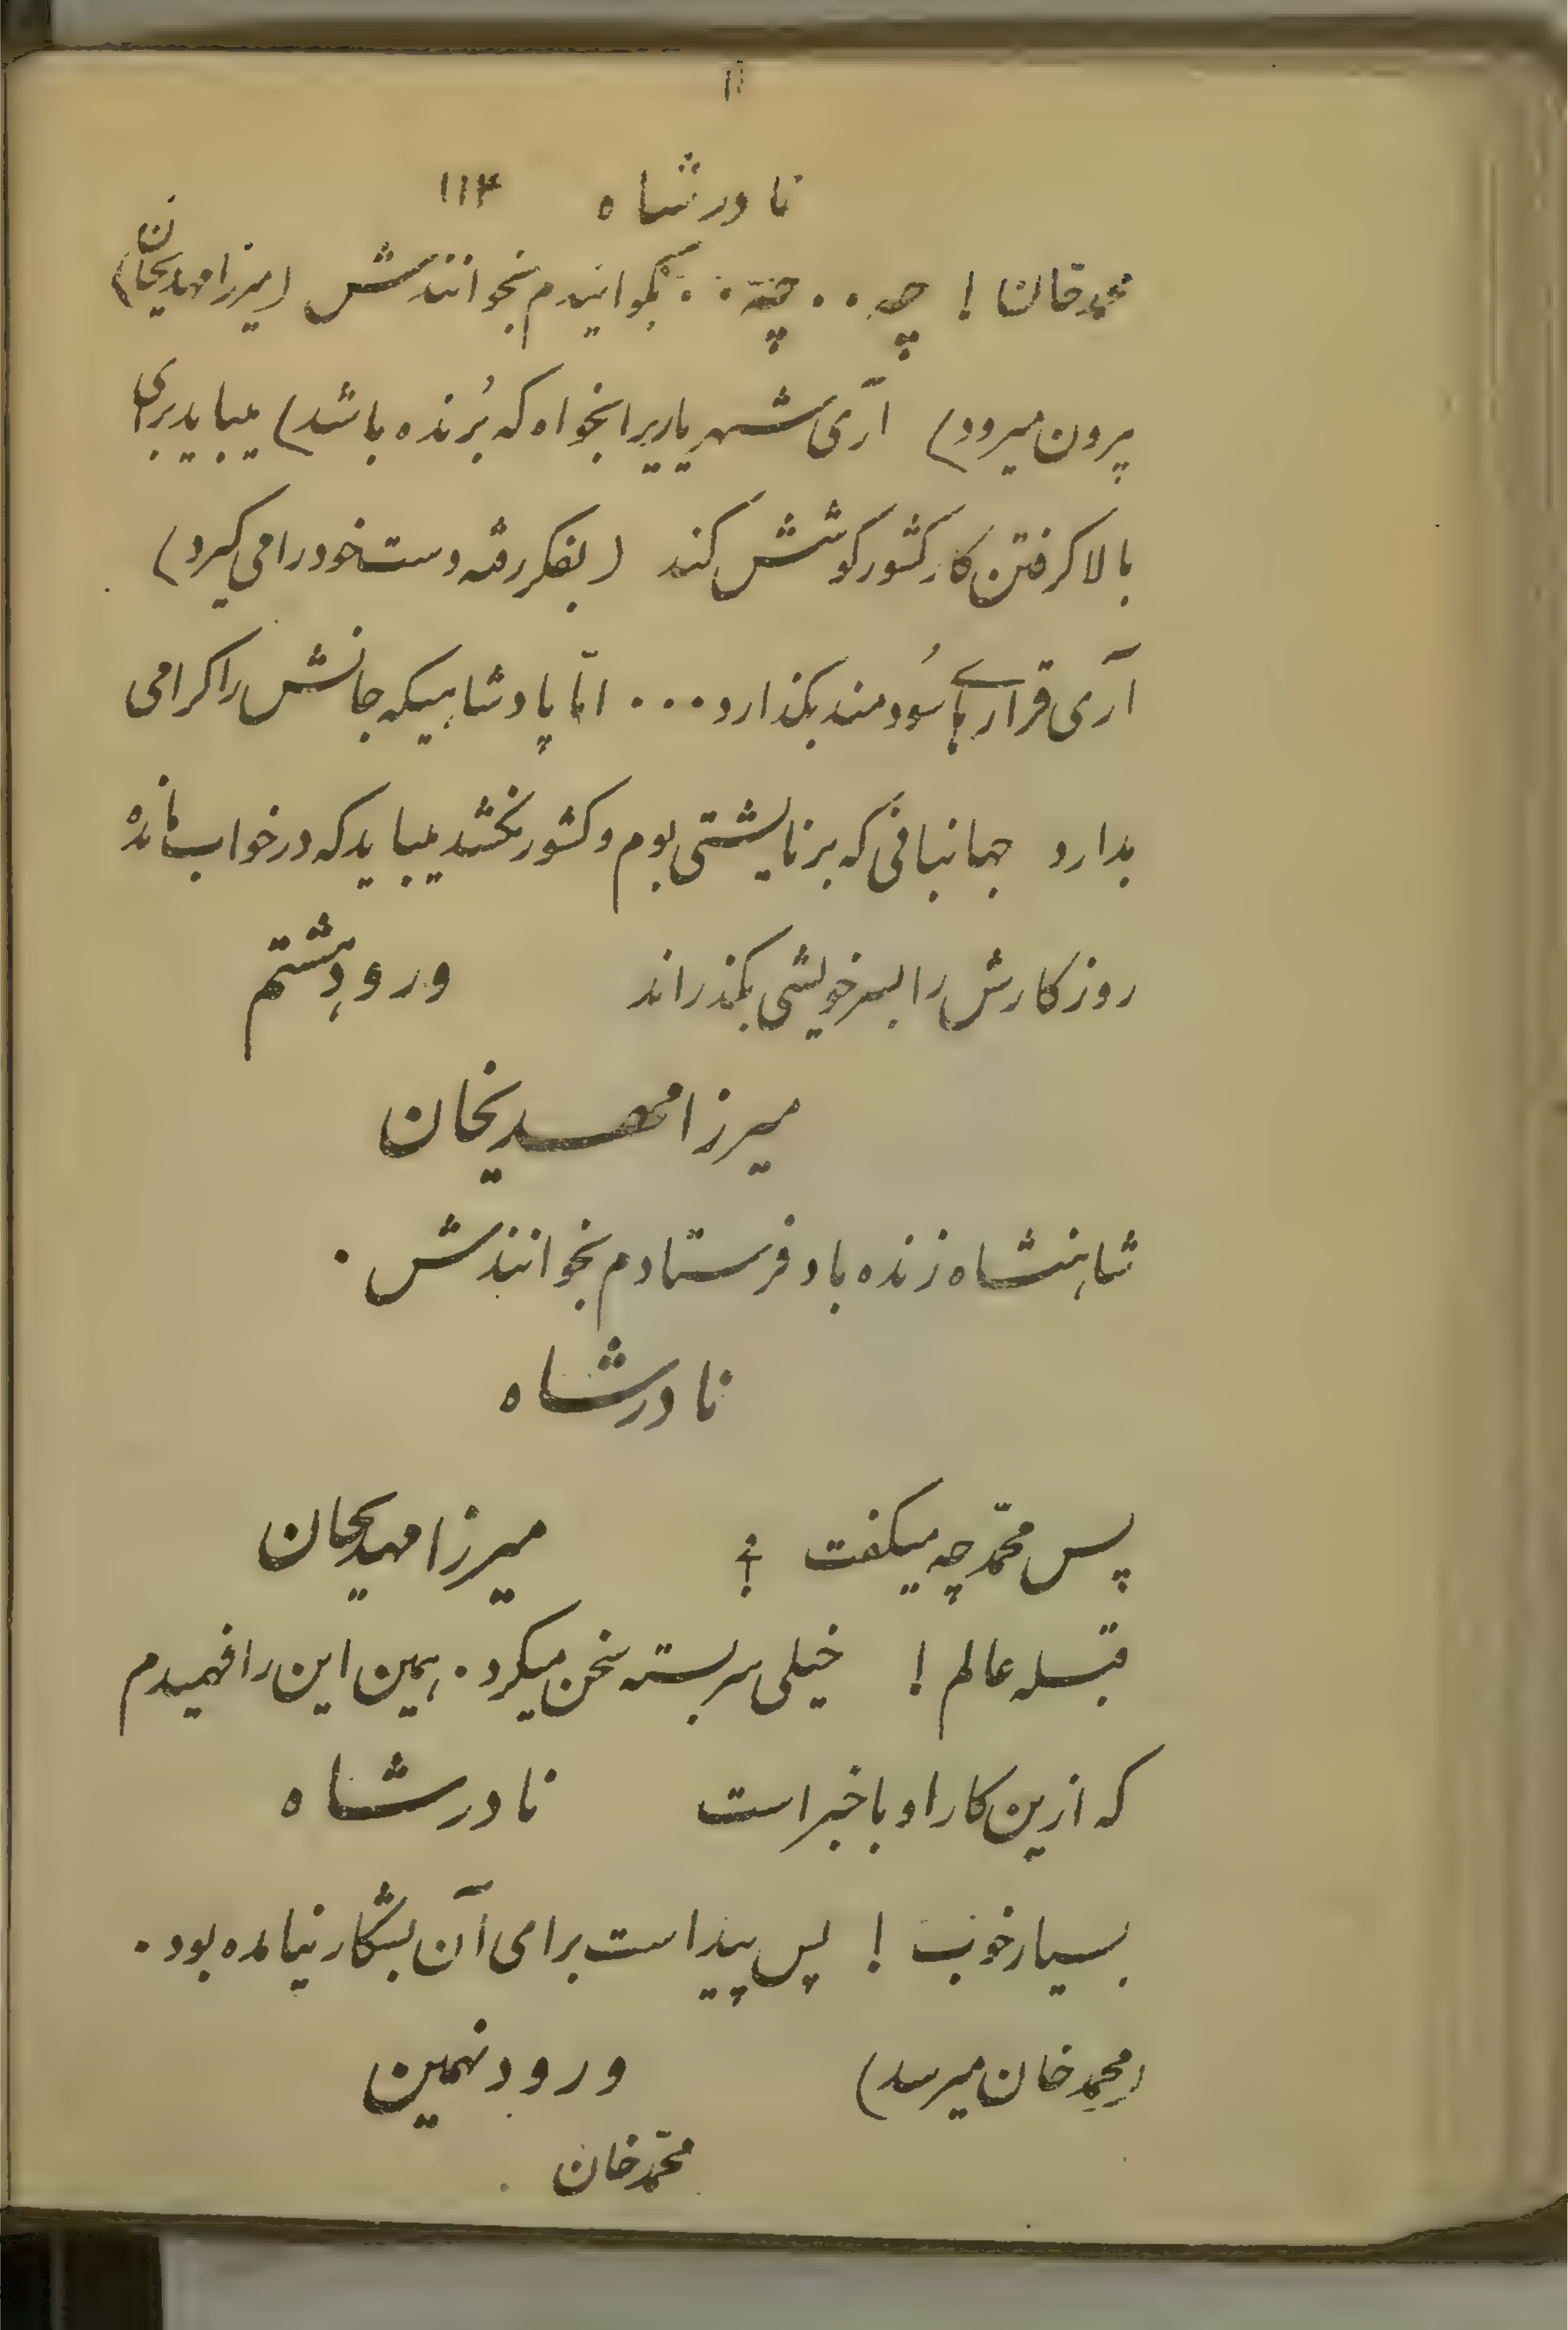 ۱۱
نادرشاه ۱۱۴
محمدخانا ! چه . . چه . . بگو ایندم بخوانندش (میرزامهدیخان
بیرون میرود) آری شهریاریرا بخواه که بُرنده باشد) میباید برای
بالا گرفتن کار کشور کوشش کند (بفکر رفته دست خود را می گیرد)
آری قرارهای سُودمند بگذارد . . . امّا پادشاهیکه جانش را گرامی
بدارد جهانبانی که برنایشتی بوم و کشور بخشد میباید که در خواب مانده
روزگارش را بسر خویشی بگذراند ورود هشتم
میرزا مهدیخان
شاهنشاه زنده باد فرستادم بخوانندش .
نادرشاه
پس محمّد چه میگفت ؟ میرزا مهدیخان
قبله عالم ! خیلی سربسته سخن میکرد . همین این را فهمیدم
که ازین کار او باخبر است نادرشاه
بسیار خوب ! پس پیداست برای آن بشکار نیامده بود .
(محمدخان میرسد) ورود نهمین
محمّدخان